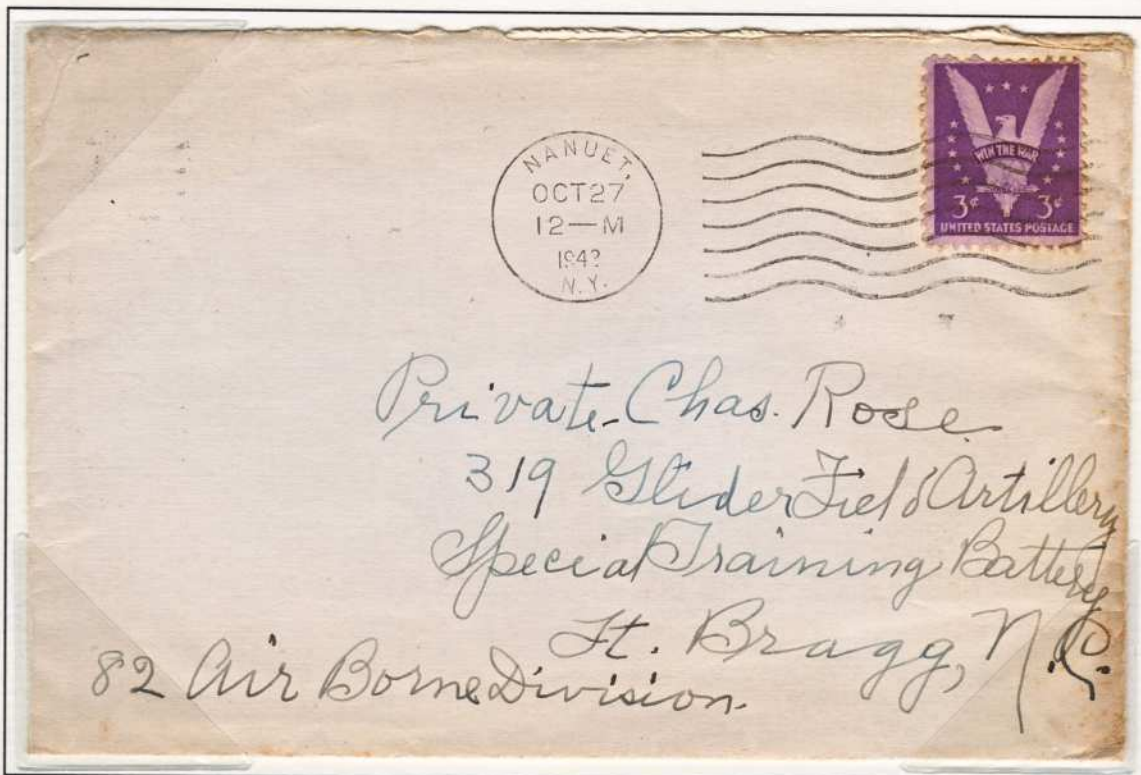 NANUET,
OCT 27
12—M
N.Y.
WIN THE WAR
3¢ 3¢
UNITED STATES POSTAGE
Private Chas. Rose
319 Glider Field Artillery
Special Training Battery
Ft. Bragg, N.C.
82 Air Borne Division.